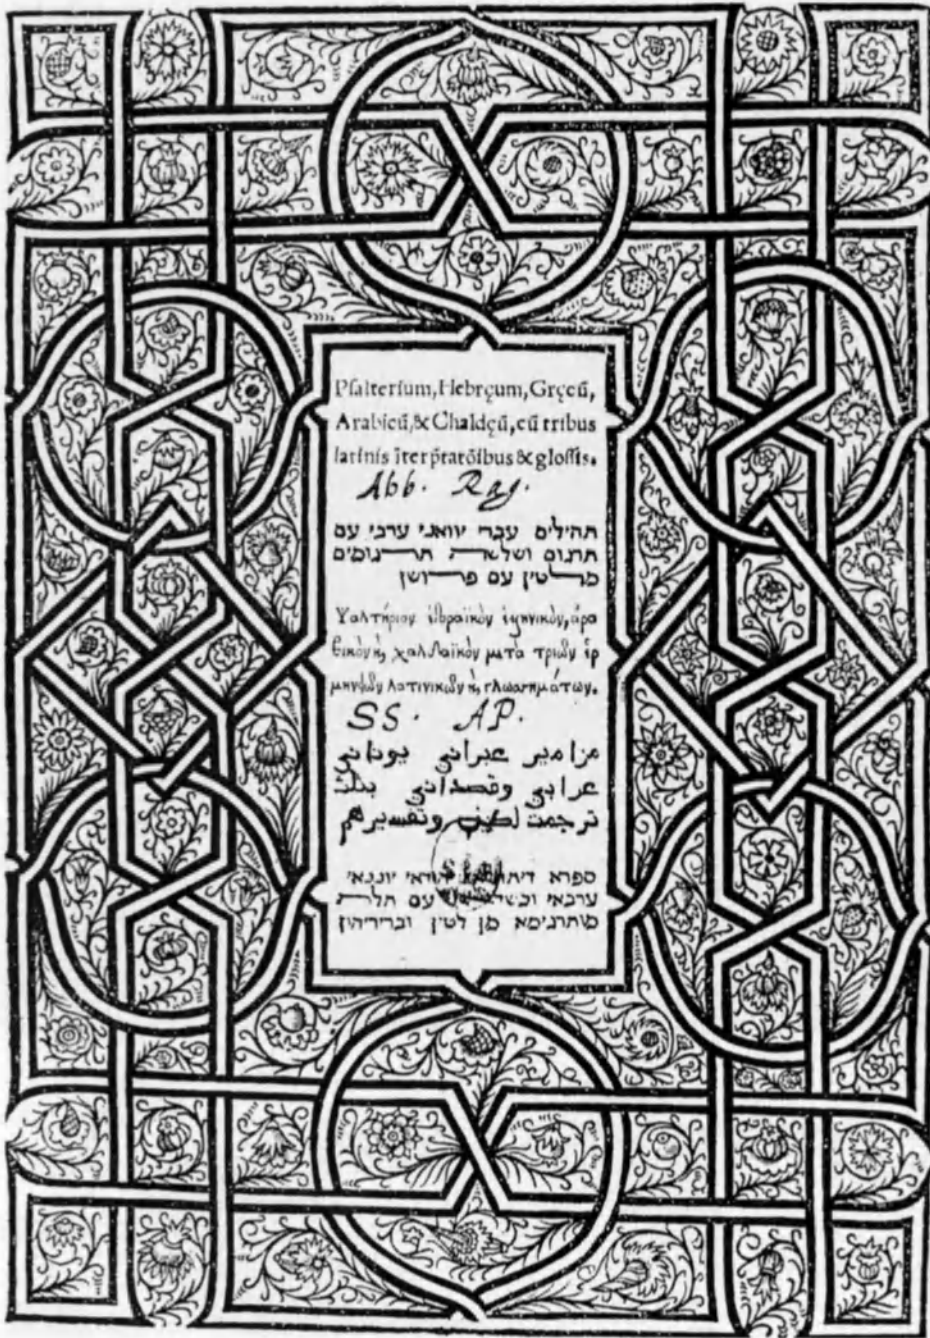 Psalterium, Hebręum, Gręcū,
Arabicū, & Chaldęū, cū tribus
latinis īterp̄tatōibus & glossis.
Abb. Rag.
תהילים עברי יוואני ערבי עם
תרגום ושלשה תרגומים
מלטין עם פרושן
Ψαλτήριον ἑβραϊκὸν ἑλληνικὸν, ἀρα
βικὸν καὶ χαλδαϊκὸν μετὰ τριῶν ἑρ
μηνιῶν λατινικῶν καὶ γλωσσημάτων.
SS. AP.
مزامير عبراني يوناني
عرابي وقصداني بثلث
ترجمت لطيني وتفسيرهم
ספרא יוננאי
ערבאי עם תלת
מתרגימא מן לטין ובריריהון